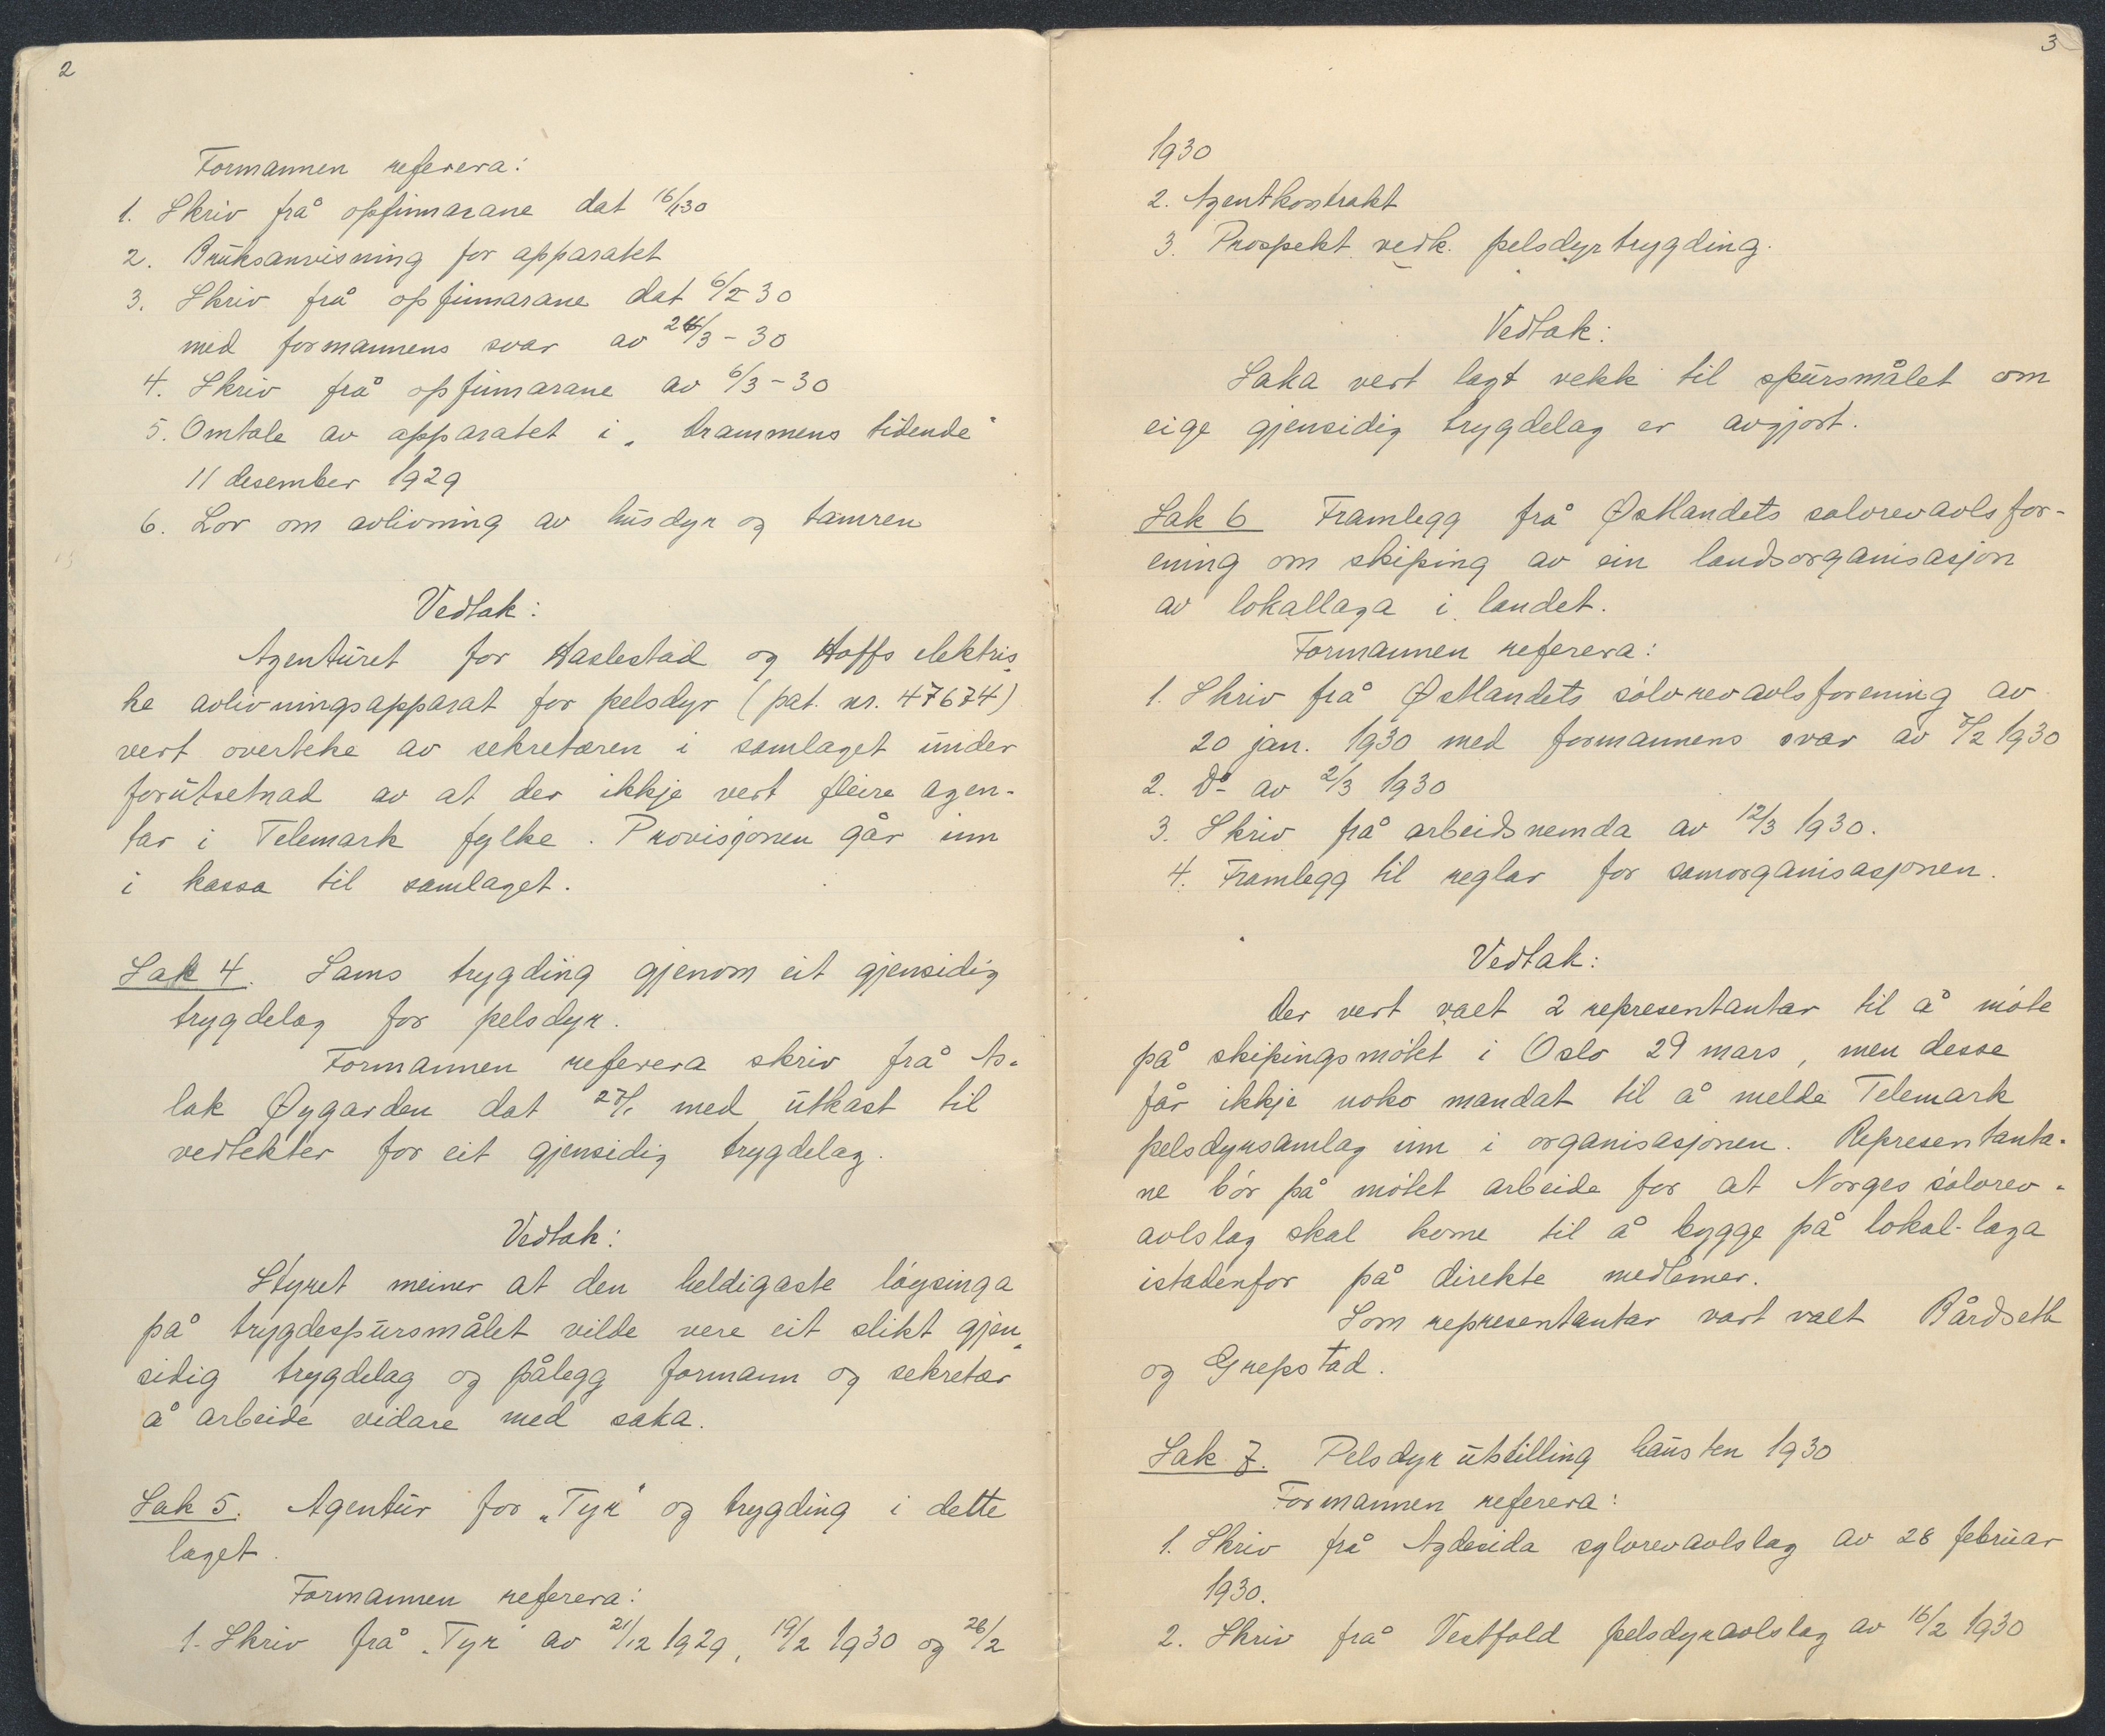 2
Formannen referera:
1. Skriv frå opfinnarane dat 16/1 30
2. Bruksanvisning for apparatet
3. Skriv frå opfinnarane dat 6/2 30
med formannens svar av 24/3 - 30
4. Skriv frå opfinnarane av 6/3 - 30
5. Omtale av apparatet i „Drammens tidende"
11 desember 1929
6. Lov om avlivning av husdyr og tamren
Vedtak:
Agenturet for Haslestad og Hoffs elektris
ke avlivningsapparat for pelsdyr (pat. nr. 47674)
vert overteke av sekretæren i samlaget under
forutsetnad av at der ikkje vert fleire agen-
tar i Telemark fylke. Provisjonen går inn
i kassa til samlaget.
Sak 4. Sams trygding gjenom eit gjensidig
trygdelag for pelsdyr.
Formannen referera skriv frå As-
lak Øygarden dat 27/1 med utkast til
vedtekter for eit gjensidig trygdelag.
Vedtak:
Styret meiner at den heldigaste løysinga
på trygdespursmålet vilde vere eit slikt gjen-
sidig trygdelag og pålegg formann og sekretær
å arbeide vidare med saka.
Sak 5. Agentur for „Tyr" og trygding i dette
laget.
Formannen referera:
1. Skriv frå „Tyr" av 21/12 1929, 19/2 1930 og 26/2
3
1930
2. Agentkontrakt
3. Prospekt vedk. pelsdyrtrygding.
Vedtak:
Saka vert lagt vekk til spursmålet om
eige gjensidig trygdelag er avgjort.
Sak 6 Framlegg frå Østlandets sølvrevavlsfor-
ening om skiping av ein landsorganisasjon
av lokallaga i landet.
Formannen referera:
1. Skriv frå Østlandets sølvrevavlsforening av
20 jan. 1930 med formannens svar av /2 1930
2. Do av 2/3 1930
3. Skriv frå arbeidsnemda av 12/3 1930.
4. Framlegg til reglar for samorganisasjonen.
Vedtak:
Der vert valt 2 representantar til å møte
på skipingsmøtet i Oslo 29 mars, men desse
får ikkje noko mandat til å melde Telemark
pelsdyrsamlag inn i organisasjonen. Representanta-
ne bør på møtet arbeide for at Norges sølvrev-
avlslag skal kome til å bygge på lokal-laga
istadenfor på direkte medlemer.
Som representantar vart valt Bårdseth
og Grepstad.
Sak 7. Pelsdyrutstilling hausten 1930
Formannen referera:
1. Skriv frå Agdesida sylvrevavlslag av 28 februar
1930.
2. Skriv frå Vestfold pelsdyravlslag av 16/2 1930